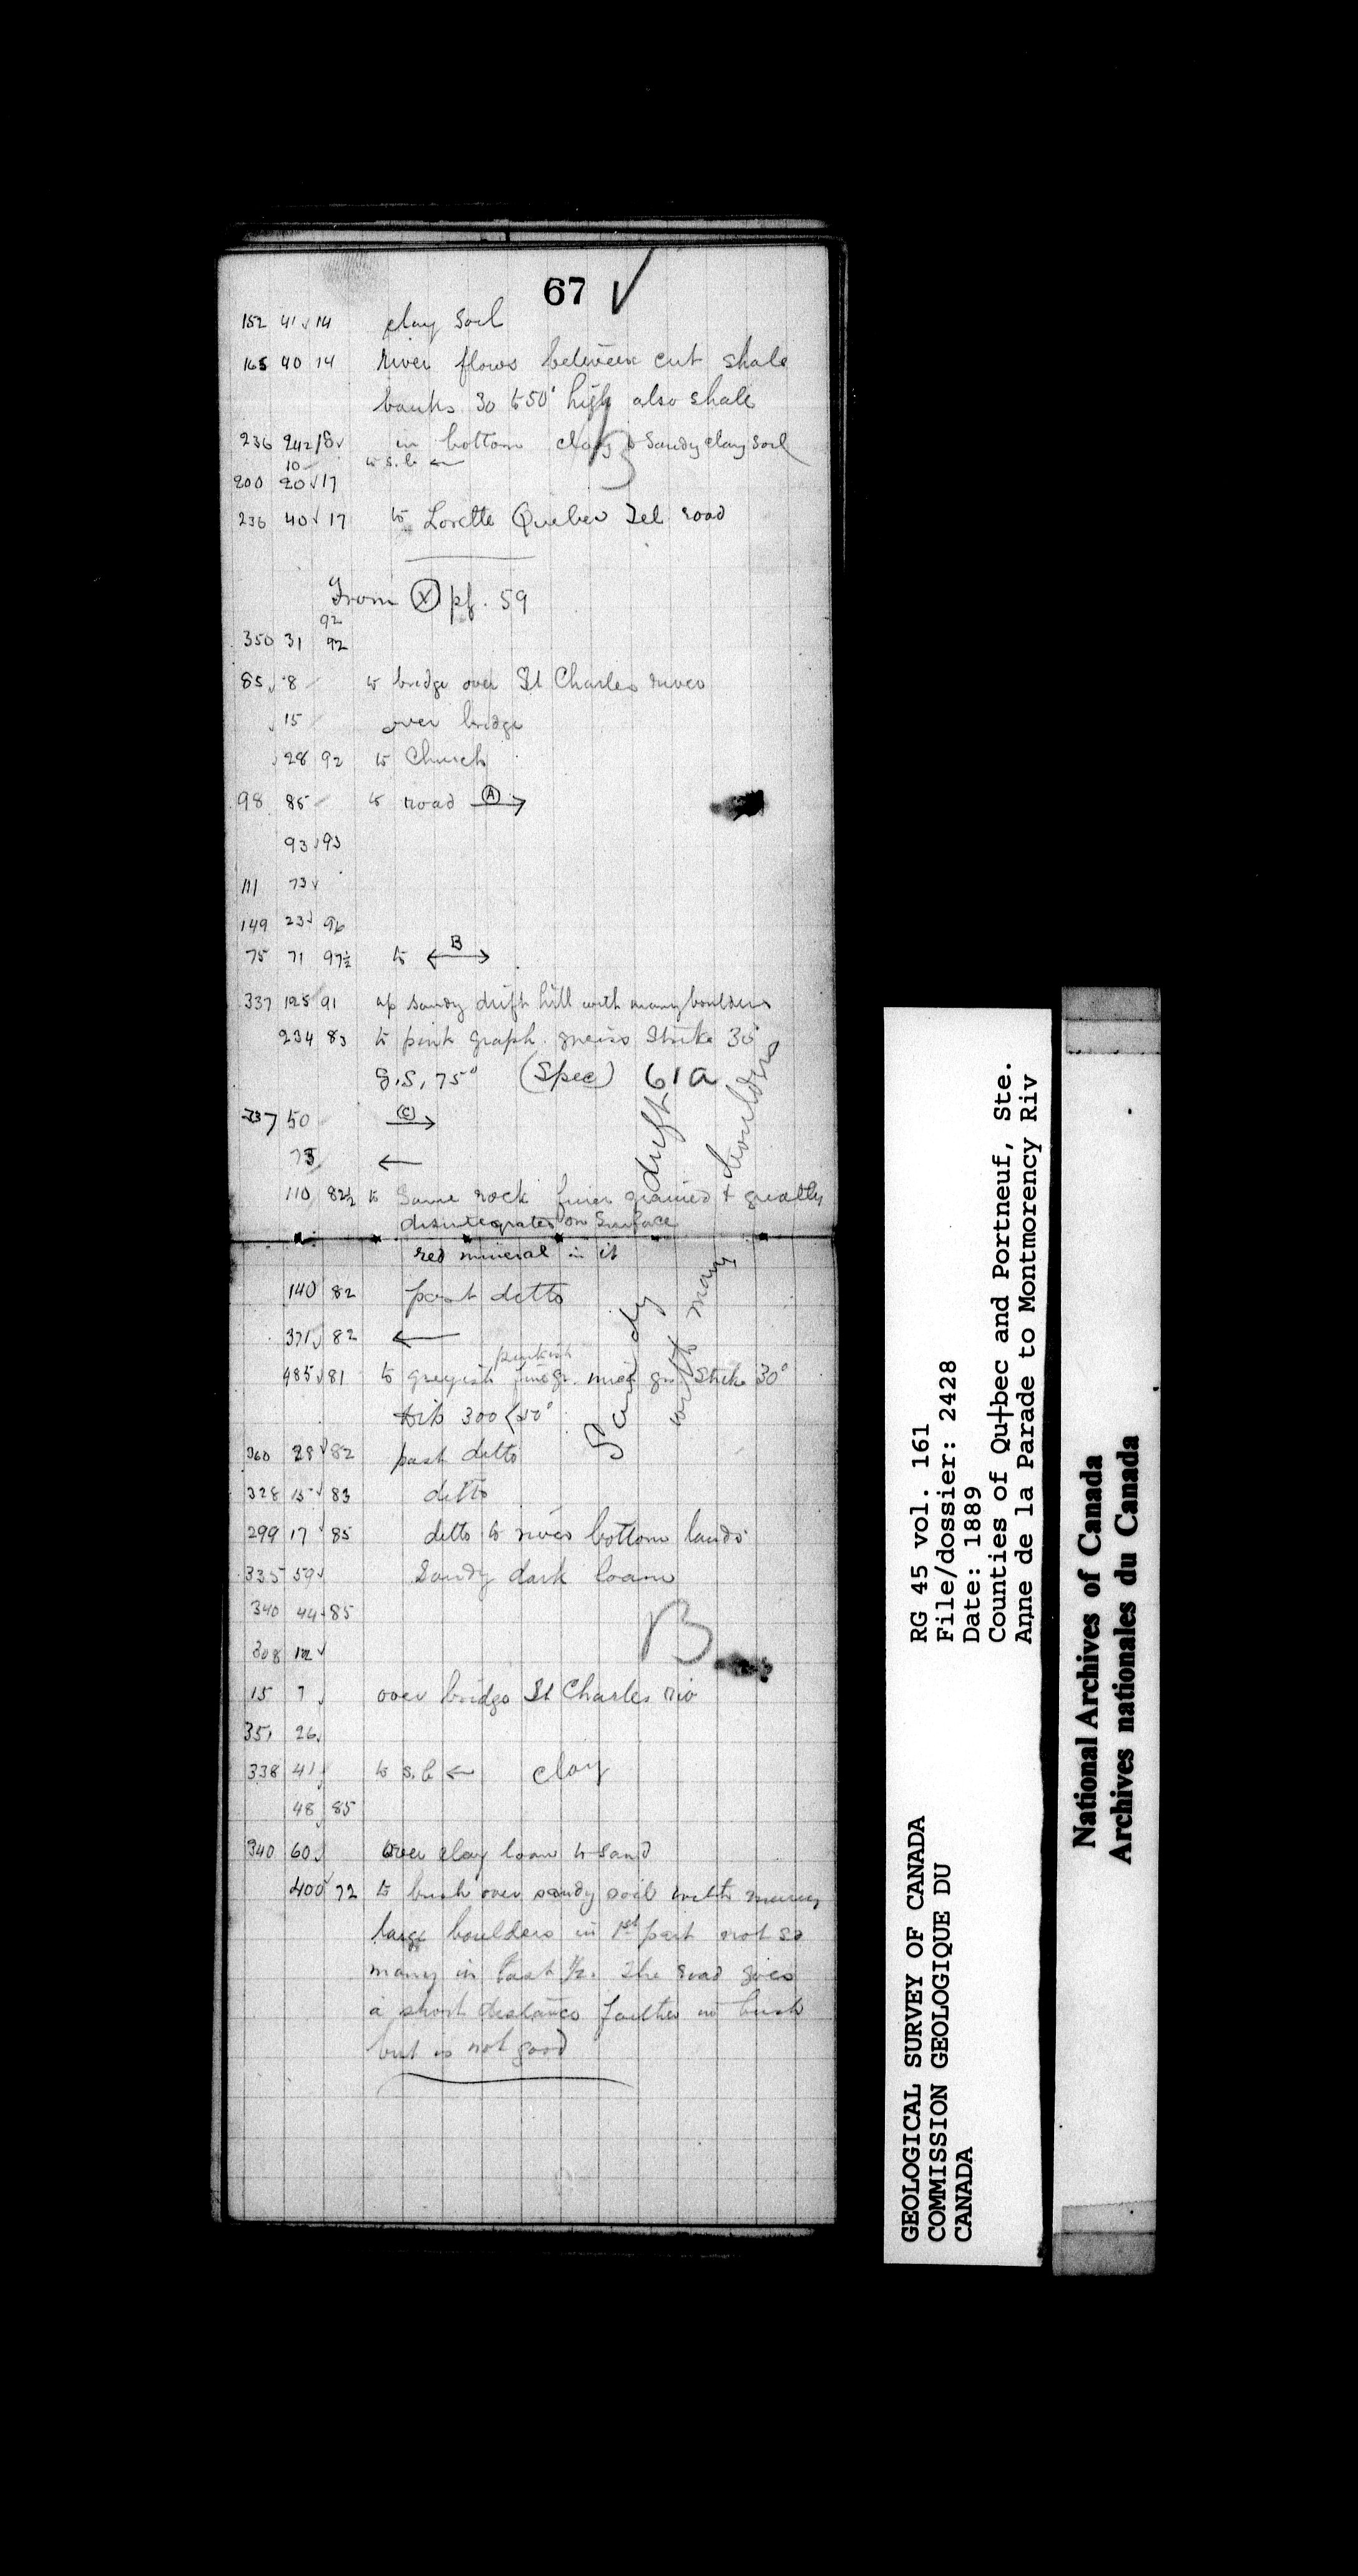 67 ✓
152 41 14 clay soil
165 40 14 river flows between cut shale
banks 30 to 50' high also shale
236 242 18 in bottom clay & sandy clay soil
10 to s.b ←
200 20 17
236 40 17 to Lorette Quebec Tel road
From Ⓧ pg. 59
92
350 31 92
85 8 to bridge over St Charles river
15 over bridge
28 92 to Church
98 85 to road Ⓐ→
93 93
111 73
149 23 96
75 71 97½ to ←B→
337 125 91 up sandy drift hill with many boulders
234 83 to pink graph. gneiss Strike 30°
g.s. 75° (Spec) 61a
337 50 Ⓒ→
73 ←
110 82½ to Same rock finer grained & greatly
disintegrated on surface
red mineral in it
140 82 past ditto
371 82 ←
pinkish
485 81 to greyish fine gr. mica gn Strike 30°
dip 300<50°
360 28 82 past ditto
328 15 83 ditto
299 17 85 ditto to river bottom lands
335 59 Sandy dark loam
340 44 85
308 12
Sandy drift
with many boulders
B
15 7 over bridge St Charles riv
351 26
338 41 to s.b ← clay
48 85
340 60 over clay loam to sand
400 72 to bush over sandy soil with many
large boulders in 1st part not so
many in last ½. The road goes
a short distance farther in bush
but is not good
GEOLOGICAL SURVEY OF CANADA
COMMISSION GEOLOGIQUE DU
CANADA
RG 45 vol. 161
File/dossier: 2428
Date: 1889
Counties of Qu†bec and Portneuf, Ste.
Anne de la Parade to Montmorency Riv
National Archives of Canada
Archives nationales du Canada